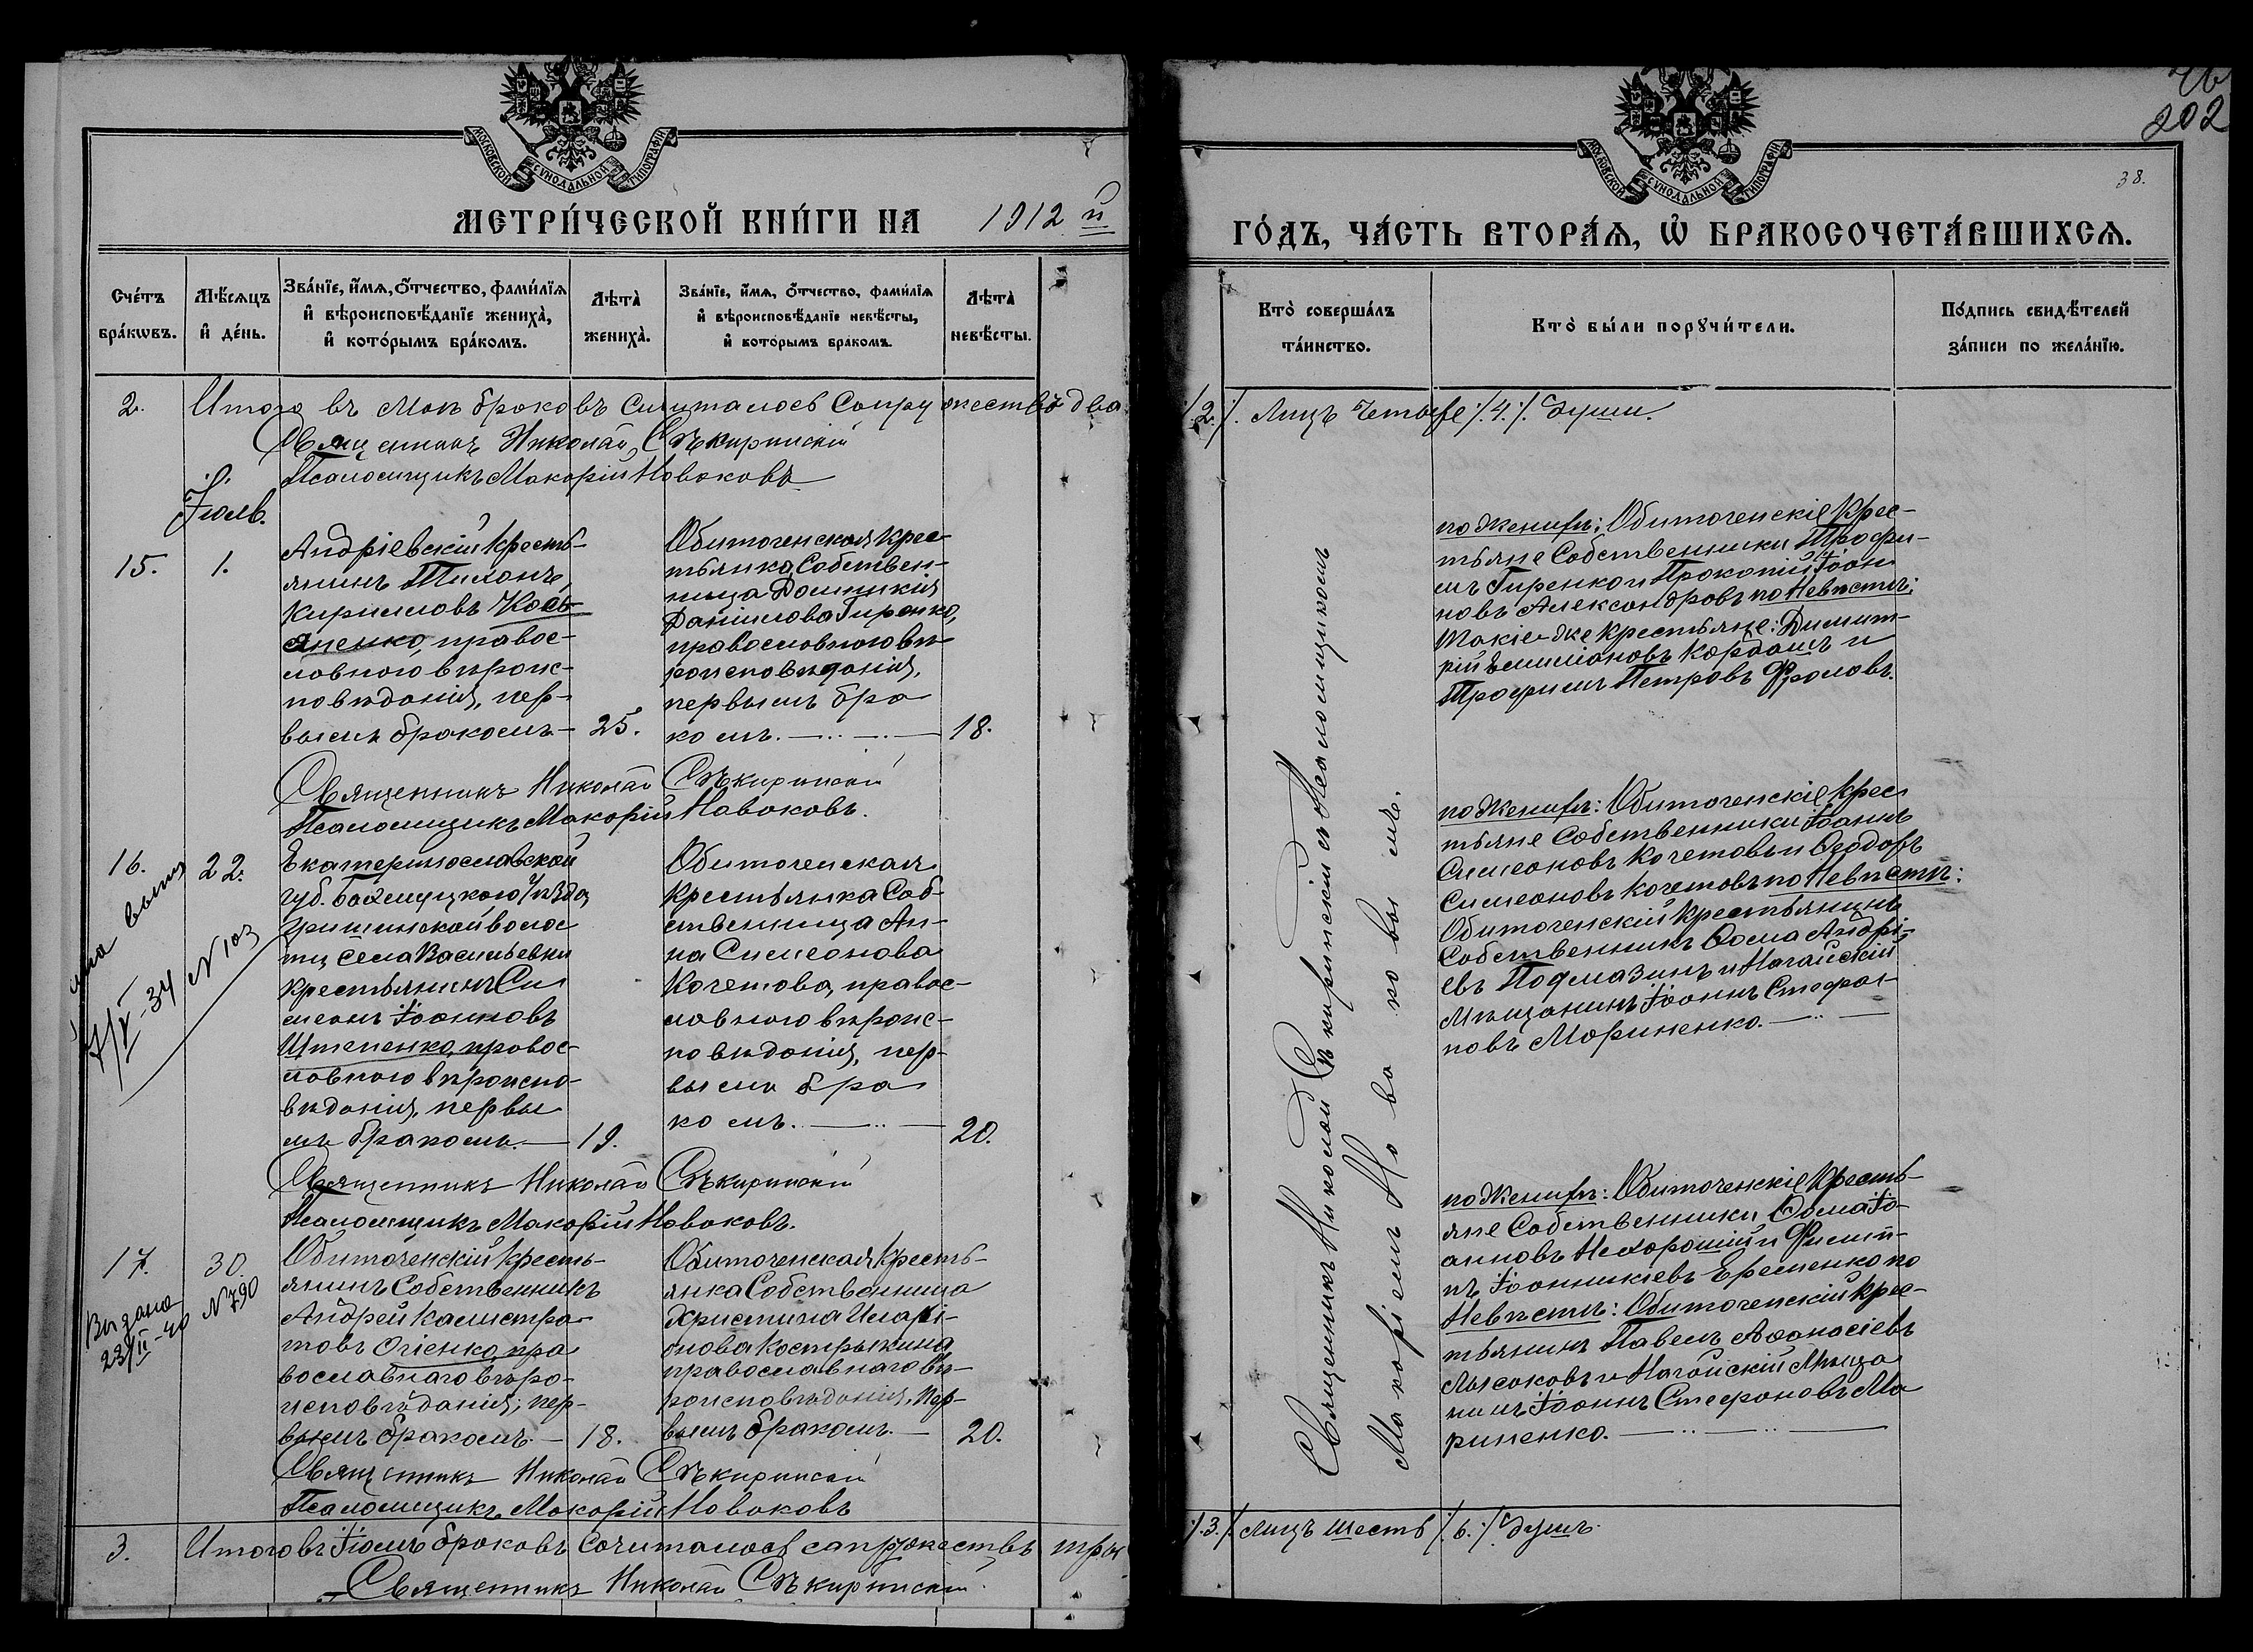 МОСКОВСКОЙ СѴНОДАЛЬНОЙ ТИПОГРАФІИ
МЕТРИ́ЧЕСКОЙ КНИ́ГИ НА 1912 й
Сче́тъ бра́кѡвъ.
Мѣ́сѧцъ и҆ де́нь.
Зва́нїе, и҆́мѧ, ѻ҆́тчество, фами́лїѧ
и҆ вѣроисповѣ́данїе жениха̀,
и҆ кото́рымъ бра́комъ.
Лѣта̀ жениха̀.
Зва́нїе, и҆́мѧ, ѻ҆́тчество, фами́лїѧ
и҆ вѣроисповѣ́данїе невѣ́сты,
и҆ которымъ бракомъ.
Лѣта̀ невѣ́сты.
2. Итого въ Маѣ браковъ сочиталось супружествъ два
Священникъ Николай Сѣкиринскій
Псаломщикъ Макарій Новаковъ
Іюль.
15.
1.
Андріевскій кресть-
янинъ Тихонъ
Кирилловъ Кась-
яненко, правос-
лавного вѣроис-
повѣданія, пер-
вымъ бракомъ. — 25.
Обиточенская крес-
тьянка Собствен-
ница Домникія
Даніилова Гиренко,
православного вѣ-
роисповѣданія,
первымъ бра
комъ. — 18.
Священникъ Николай Сѣкиринскій
Псаломщикъ Макарій Новаковъ.
16.
22.
7/V-34 N 103
Екатеринославской
губ. Бахмутскаго уѣзда,
Гришинской волос
ти села Васильевки
крестьянинъ Си
меонъ Іоанновъ
Штепенко, правос-
лавного вѣроиспо-
вѣданія, первы
мъ бракомъ. — 19.
Обиточенская
крестьянка Соб-
ственница Ан-
на Симеонова
Кочетова, правос-
лавного вѣроис-
повѣданія, пер-
вымъ бра
комъ. — 20.
Священникъ Николай Сѣкиринскій
Псаломщикъ Макарій Новаковъ.
17.
30.
Выдана
23/II-40 N 790
Обиточенскій кресть-
янинъ Собственникъ
Андрей Калистра-
товъ Огіенко, пра
вославнаго вѣро-
исповѣданія, пер-
вымъ бракомъ. — 18.
Обиточенская кресть-
янка Собственница
Христина Илларі-
онова Кострыкина,
православнаго вѣ-
роисповѣданія, пер-
вымъ бракомъ. — 20.
Священникъ Николай Сѣкиринскій
Псаломщикъ Макарій Новаковъ
3. Итого въ Іюлѣ браковъ сочиталось сапружествъ три
Священникъ Николай Сѣкиринскій.
202
38.
МОСКОВСКОЙ СѴНОДАЛЬНОЙ ТИПОГРАФІИ
ГО́ДЪ, ЧА́СТЬ ВТОРА́Ѧ, Ѡ҆ БРАКОСОЧЕТА́ВШИХСѦ.
Кто̀ соверша́лъ
та́инство.
Кто̀ бы́ли порꙋчи́тели.
По́дпись свидѣ́телей
за́писи по жела́нїю.
/.2./. Лицъ четыре /.4./. Души.
Священникъ Николай Сѣкиринскій съ Псаломщикомъ
Макаріемъ Новаковымъ.
по Женихѣ: Обиточенскіе крес-
тьяне Собственники Трофи-
мъ Гиренко и Прокопій Іоан
новъ Александровъ по Невѣстѣ:
такіе-же крестьяне: Димит-
рій Емиліановъ Кардашъ и
Трофимъ Петровъ Фроловъ.
по Женихѣ: Обиточенскіе крес
тьяне Собственники Іоаннъ
Симеоновъ Кочетовъ и Ѳеодоръ
Симеоновъ Кочетовъ по Невѣстѣ:
Обиточенскій крестьянинъ
Собственникъ Ѳома Андрі-
евъ Подмазинъ и Ногайскій
Мѣщанинъ Іоаннъ Стефа-
новъ Мариненко.
по Женихѣ: Обиточенскіе кресть-
яне Собственники Ѳома Іо-
анновъ Нехорошій и Филип-
пъ Іоанникіевъ Еременко по
Невѣстѣ: Обиточенскій крес-
тьянинъ Павелъ Аѳанасіевъ
Лысаковъ и Ногайскій Мѣща
нинъ Іоаннъ Стефановъ Ма
риненко.
/.3./ Лицъ шесть /.6./ Душъ.